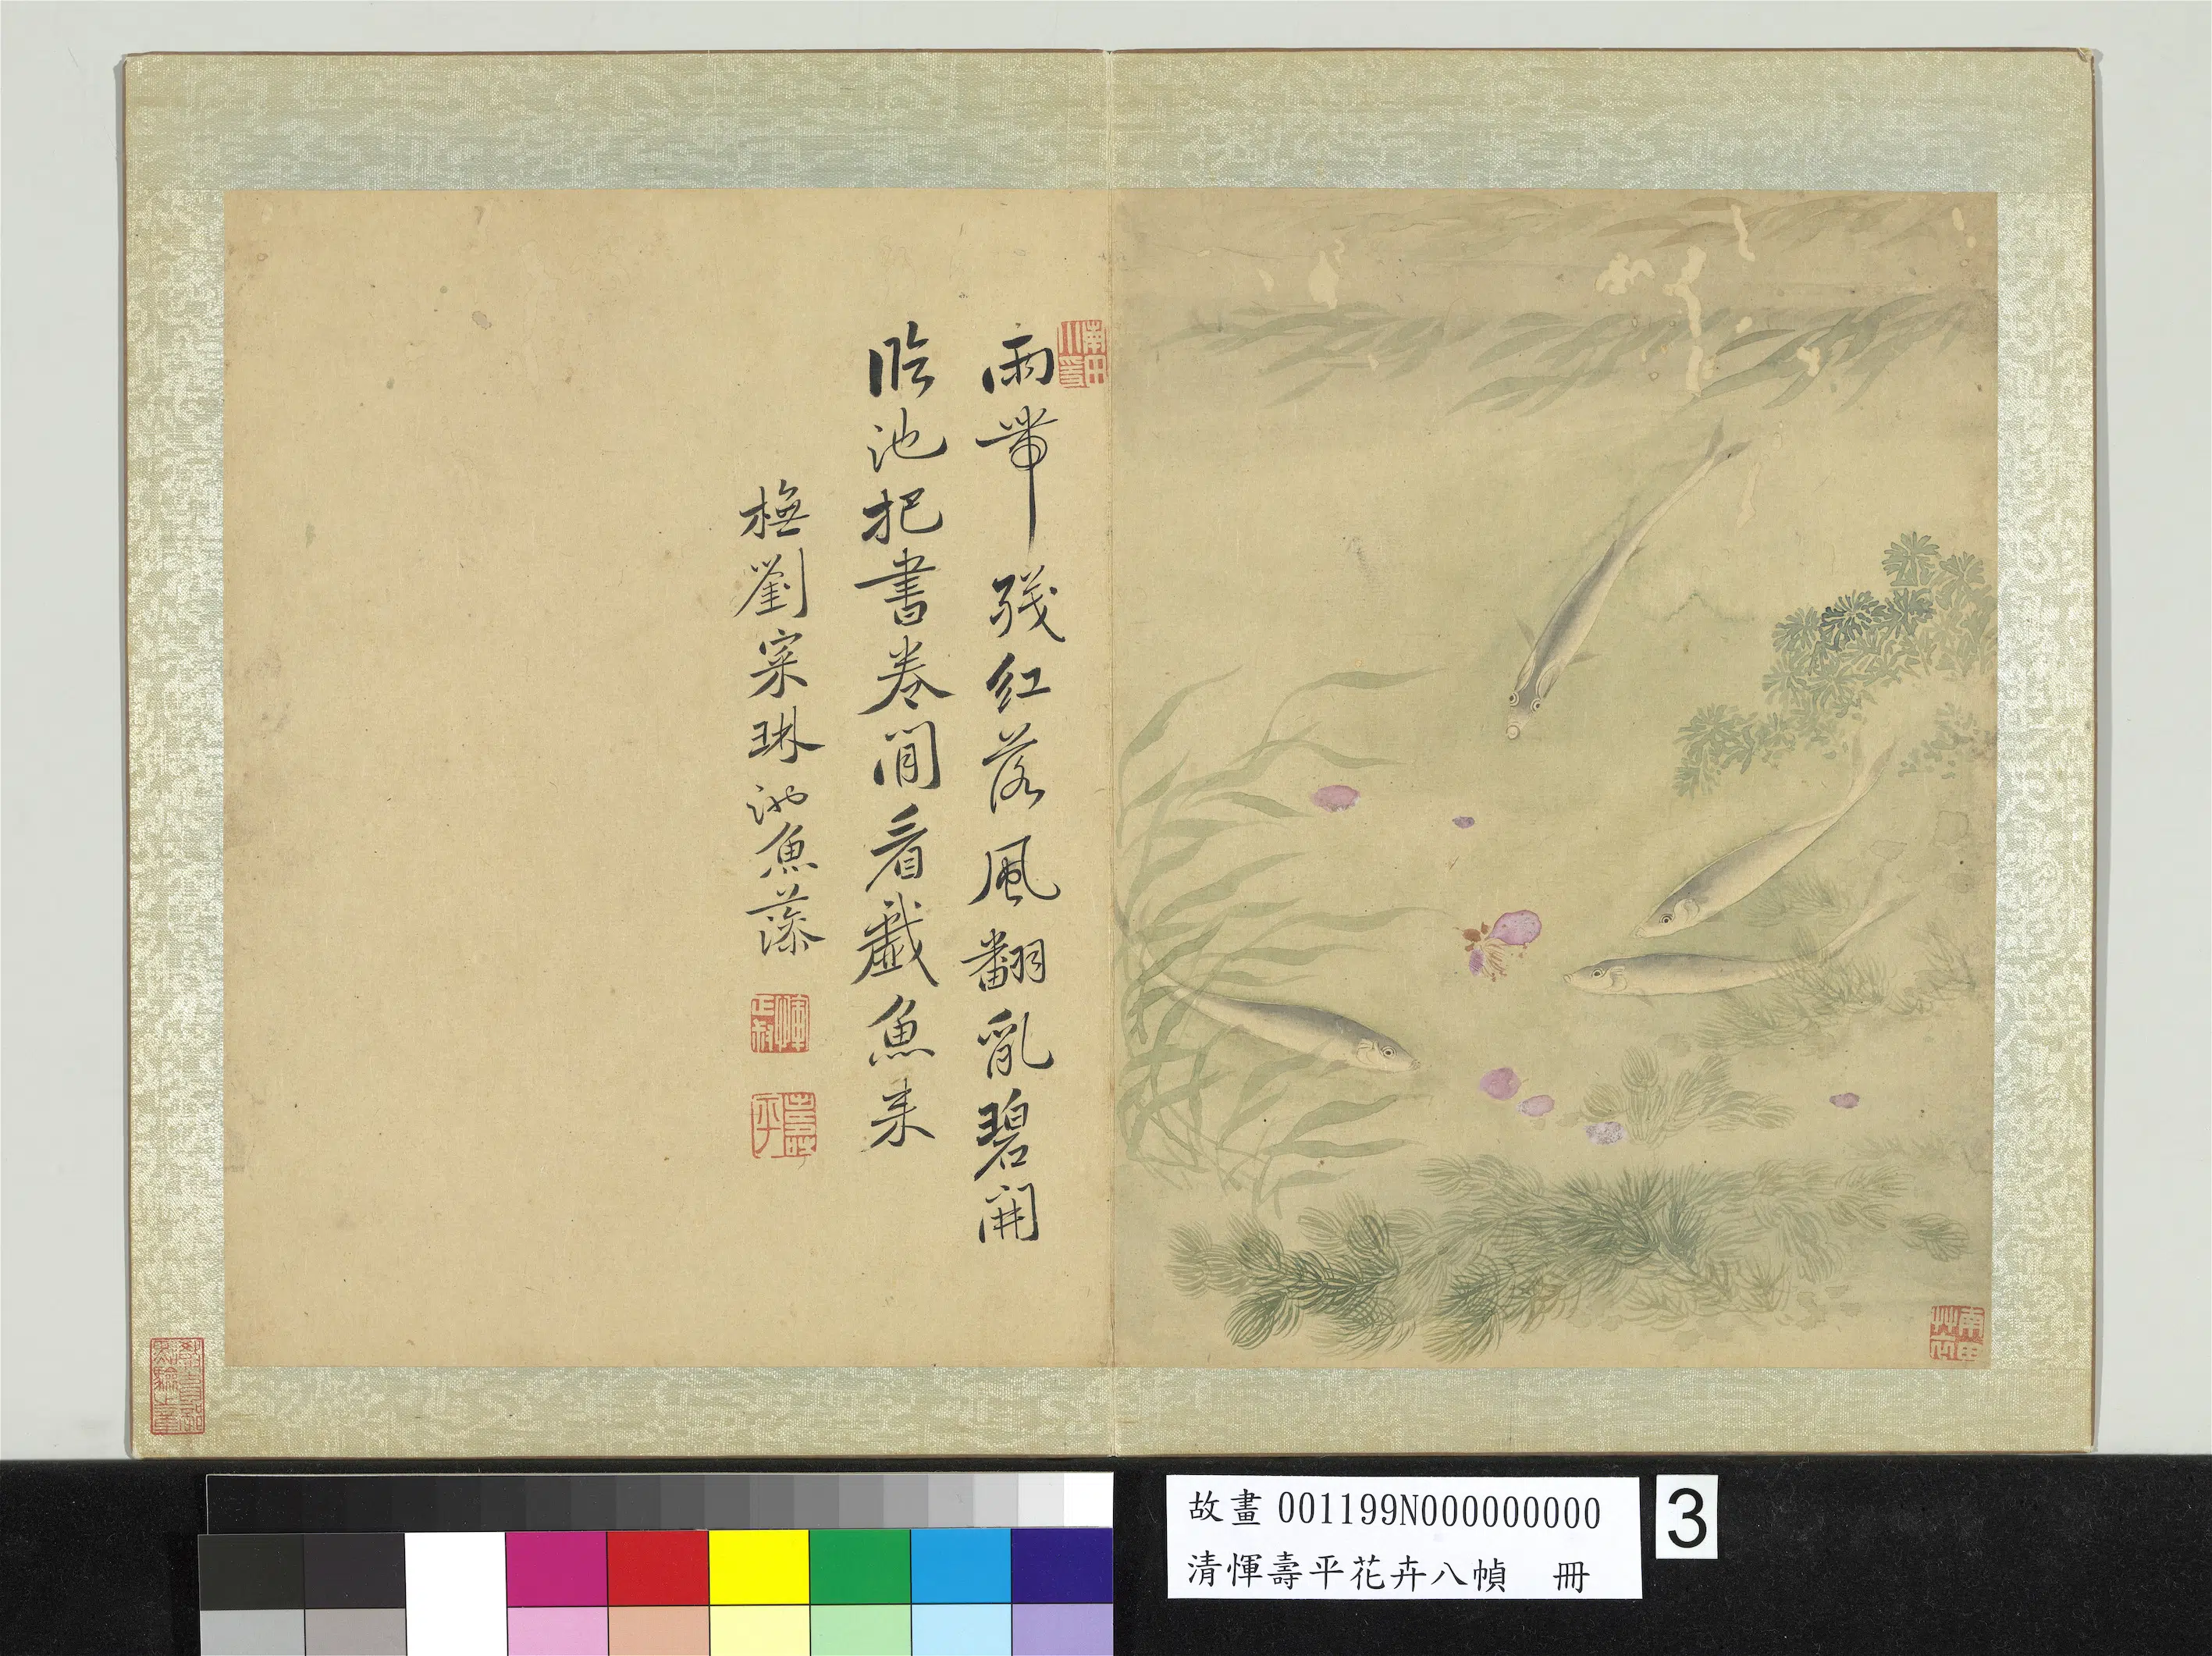 雨帶殘紅落風翻亂碧開
臨池把書卷閒看戲魚来
橅劉寀琳池魚藻
惲正叔
壽平
故畫 001199N000000000
清惲壽平花卉八幀 冊
3